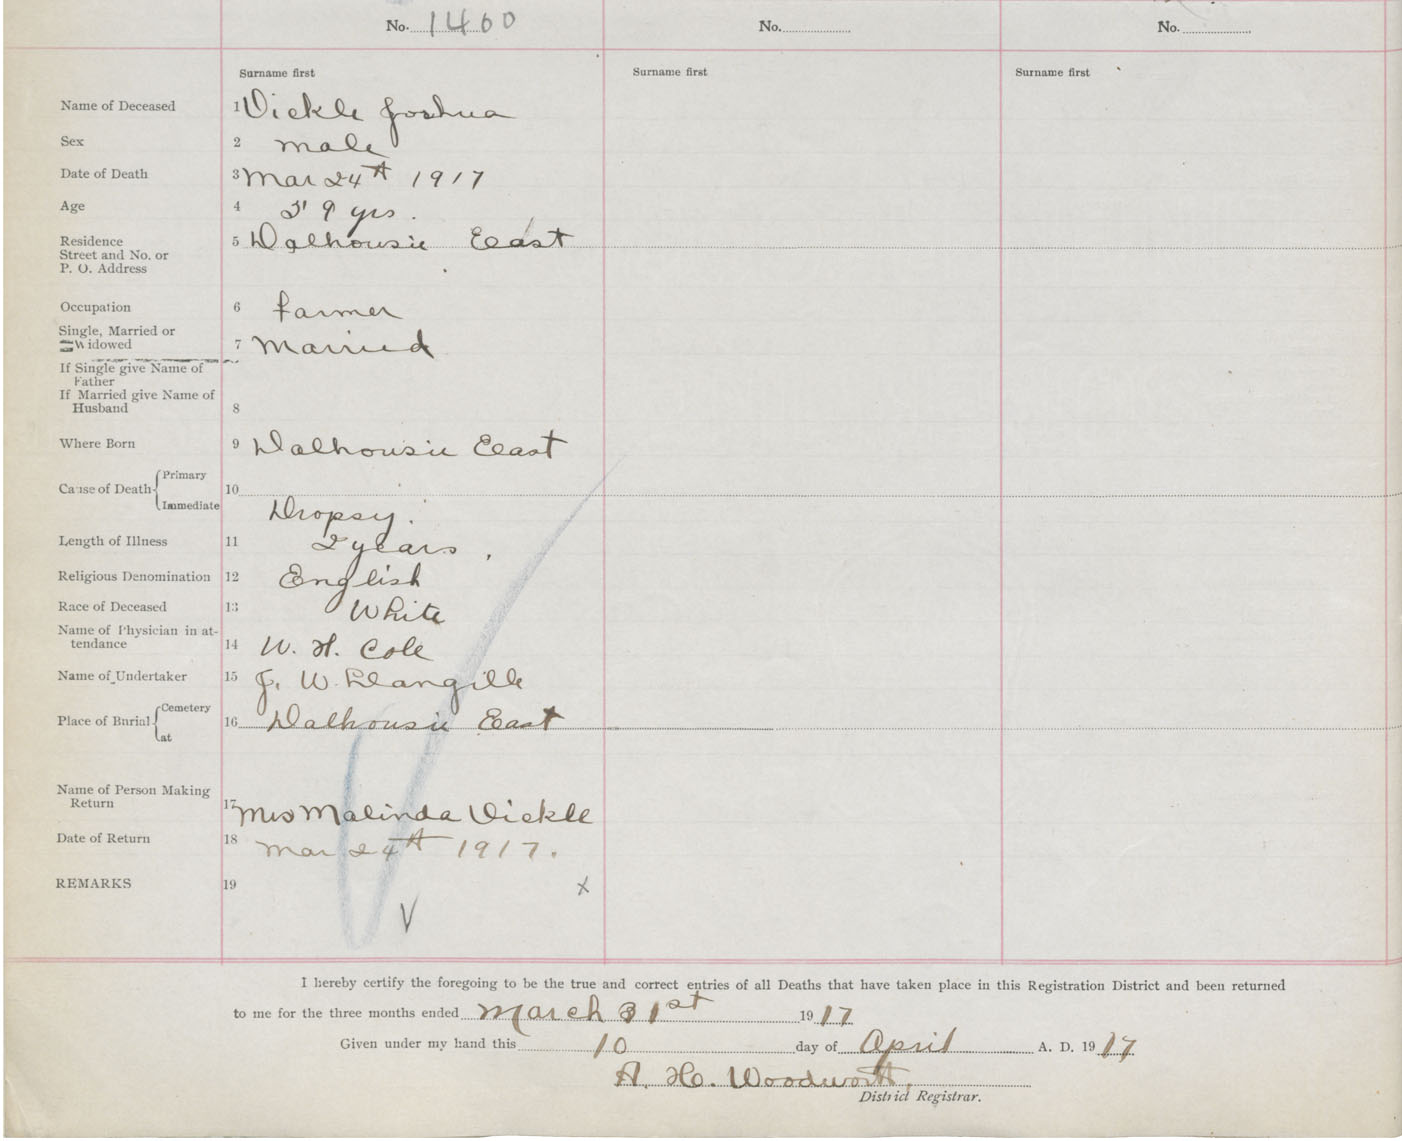 No. 1460 No. No.
Surname first Surname first Surname first
Name of Deceased 1 Vickle Joshua
Sex 2 male
Date of Death 3 Mar 24th 1917
Age 4 59 yrs.
Residence 5 Dalhousie East
Street and No. or
P. O. Address
Occupation 6 farmer
Single, Married or
Widowed 7 Married
If Single give Name of
Father
If Married give Name of
Husband 8
Where Born 9 Dalhousie East
Cause of Death Primary 10
Immediate Dropsy.
Length of Illness 11 2 years.
Religious Denomination 12 English
Race of Deceased 13 White
Name of Physician in at-
tendance 14 W. H. Cole
Name of Undertaker 15 J. W.
Place of Burial Cemetery 16 Dalhousie East
at
Name of Person Making
Return 17 Mrs Malinda Vickle
Date of Return 18 Mar 24th 1917.
REMARKS 19 x
I hereby certify the foregoing to be the true and correct entries of all Deaths that have taken place in this Registration District and been returned
to me for the three months ended March 31st 1917
Given under my hand this 10 day of April A. D. 1917
A. H. Woodworth,
District Registrar.